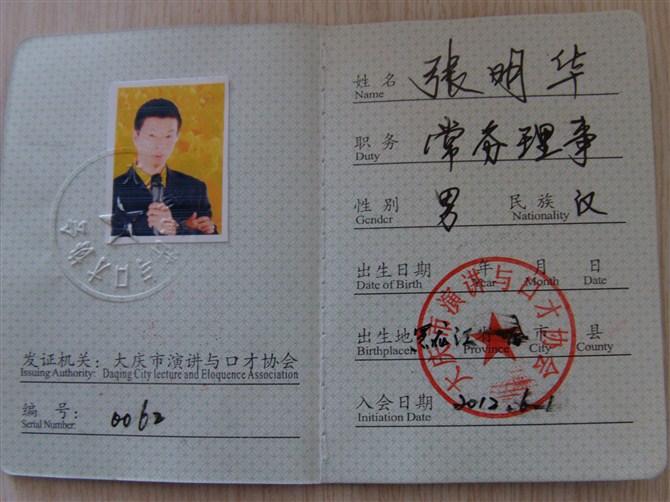 发证机关：大庆市演讲与口才协会
Issuing Authority: Daqing City lecture and Eloquence Association
编 号： 0062
Serial Number:
姓 名 张明华
Name
职 务 常务理事
Duty
性 别 男 民 族 汉
Gender Nationality
出生日期 年 月 日
Date of Birth Year Month Date
出生地 黑龙江 市 县
Birthplace Province City County
入会日期 2012.6.1
Initiation Date
大庆市演讲与口才协会